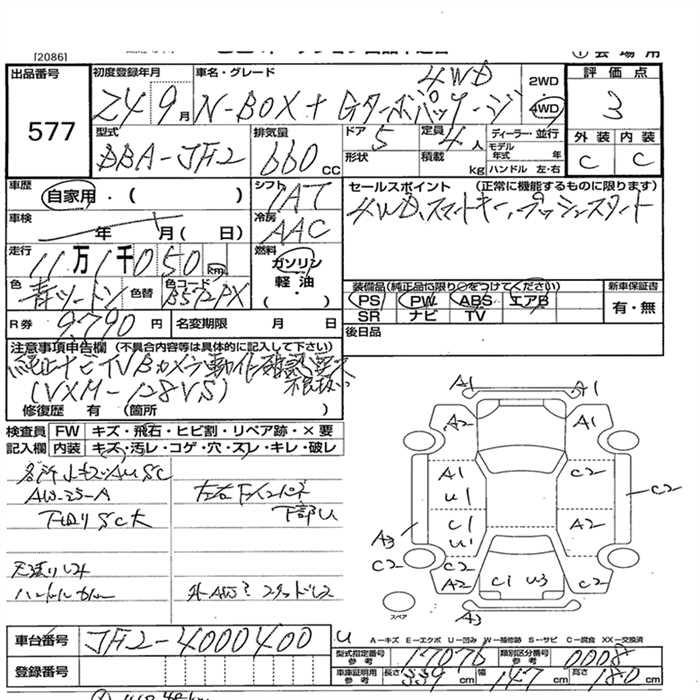 [2086]
① 会場用
出品番号
577
初度登録年月
24 9月
車名・グレード
N-BOX+ Gターボパッケージ
4WD
2WD
4WD
評価点
3
型式
DBA-JF2
排気量
660 CC
ドア 5
定員 4人
形状
積載 kg
ディーラー・並行
モデル年式 年
ハンドル 左・右
外装 内装
C C
車歴
自家用・( )
シフト
IAT
車検
年 月( 日)
冷房
AAC
走行
11万1千050km
燃料
ガソリン
軽油
・( )
セールスポイント (正常に機能するものに限ります)
4WD、スマートキー、プッシュスタート
装備品(純正品に限り○をつけてください)
新車保証書
PS PW ABS エアB
SR ナビ TV
有・無
色
青ツートン
色替
色コード
B572PX
R券 9,790円
名変期限 月 日
後日品
注意事項申告欄 (不具合内容等は具体的に記入して下さい)
純正ナビTVBカメラ動作確認
(VXM-128VS)
修復歴 有 (箇所 )
検査員
記入欄
FW キズ・飛石・ヒビ割・リペア跡・×要
内装 キズ・汚レ・コゲ・穴・スレ・キレ・破レ
各所小キズ・AUSC
AW-ススーA
下回りSC大
下部U
A1 A1
A2 A2
A1 C2
U1
C2
C1 A2
U1
A3
C2 C2
A2 C1 U3 C2
A3
スペア
車台番号
JF2-4000400
登録番号
U
A-キズ E-エクボ U-凹み W-補修跡 S-サビ C-腐食 XX-交換済
型式指定番号
参考
17076
類別区分番号
参考
0008
車庫証明用
参考
長さ 339cm
幅 147cm
高さ 180cm